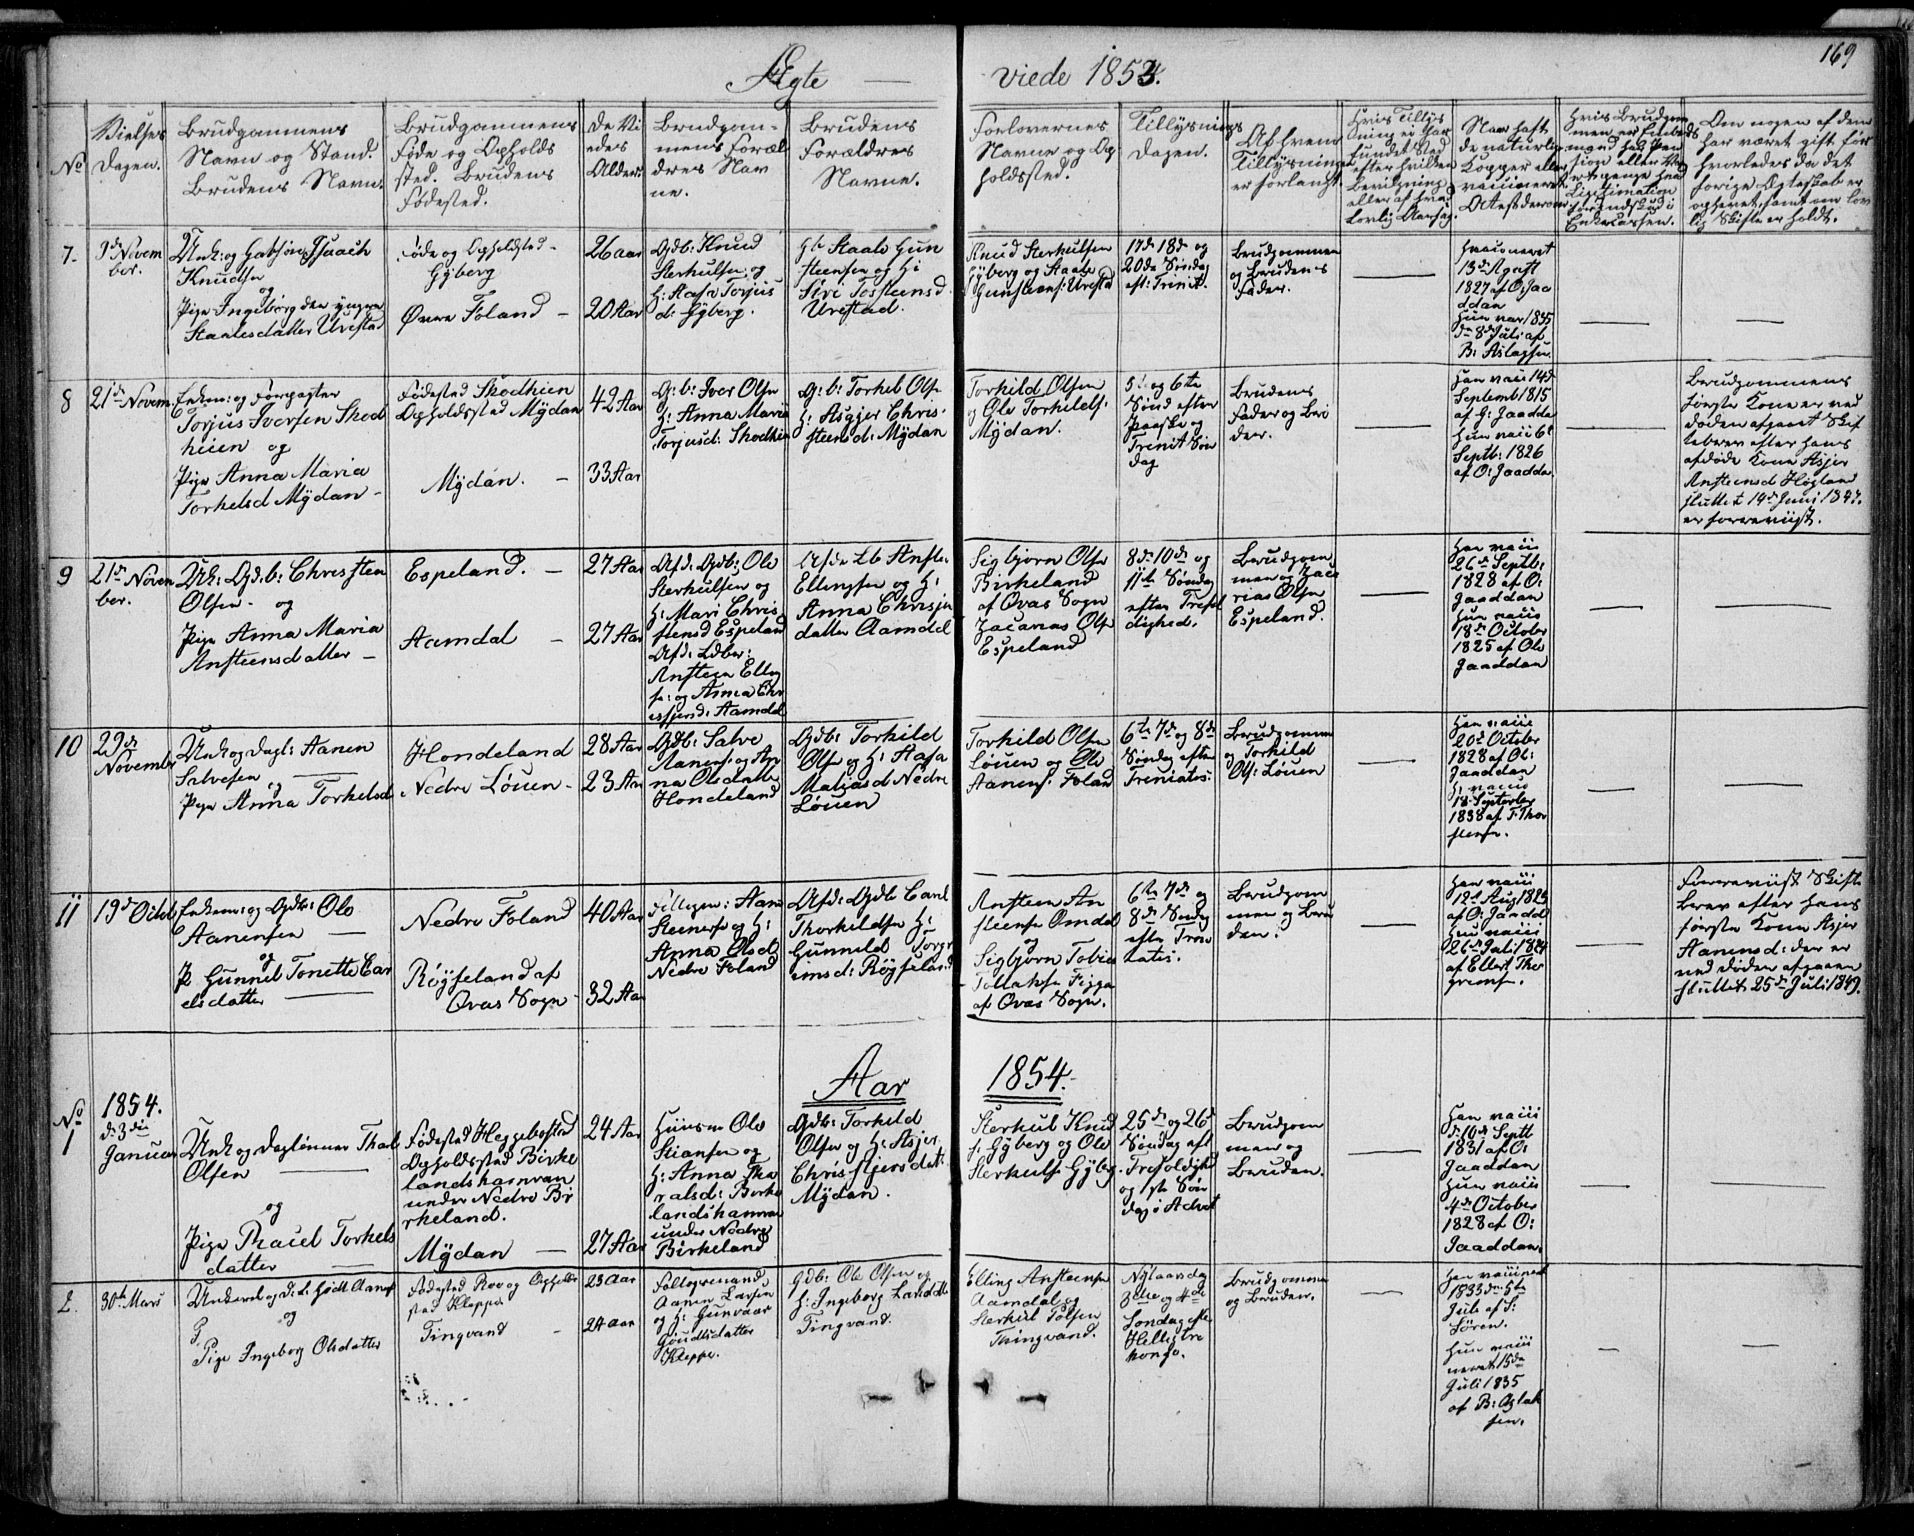 169
Ægte — viede 1853.
No
Vielses
Dagen.
Brudgommens
Navn og Stand.
Brudens Navn.
Brudgommens
Føde og Opholds
sted. Brudens
Fødested.
De Vi
edes
Alder.
Brudgom-
mens Foræl
dres Nav
ne.
Brudens
Forældres
Navne.
Forlovernes
Navne og Op
holdssted.
Tillysnings
Dagen.
Af hvem
Tillysningen
er forlangt.
Hvis Tillys
ning ei har
fundet sted
efter hvilken
Bevilgning
eller af hvad
Lovlig Aarsag.
Naar haft
de naturlige
Kopper eller
vaccineret
Attest derom
Hvis Brudgom
men er Embeds
mand
Legitimation
for Indskud i
Enkekassen.
Om nogen af dem
har været gift før
hvorledes da det
forige Ægteskab er
ophevet, samt om lov
lig Skifte er holdt.
7.
9de Novem
ber.
Unk: og Isaach
Knudsen
og
Pige Ingeborg den yngre
Staalesdatter Urestad
Føde og Opholdsted
Gÿberg
Øvre Foland —
26 aar
20 Aar
Gdb: Knud
Sterkulsen og
H: Torjus
d: Gÿberg.
Gb Staale Gun
steensen og H:
Siri Tosteensd
Urestad.
Knud Sterkulsen
Gÿberg og Staale
Gunsteens: Urestad
17de 18de og
20de Søndag
eft: Trinit.
Brudgommen
og Brudens
Fader.
13de April
1827 af O: Jaa
ddan
Hun var 1835
den 8de Juli af
B: Aslagsen
8
21de Novem.
Enkem: og Forpagter
Torjus Iversen Skod
heien og
Pige Anna Maria
Torkelsd Mÿdan -
Fødested Skodheien
Opholdssted Mÿdan
Mÿdan. —
42 Aar
33 Aar
G: b: Iver Olsen
H: Anna Maria
Torjusd: Skodheien
G: b: Torkel Olsen
H: Asgjer Chris-
steensd: Mÿdan
Torkild Olsen
og Ole Torkilds:
Mÿdan.
5te og 6te
Sønd efter
Paaske og
Trinit Søn
dag
Brudens
Fader og Bru
den.
Han vacc 14de
Septemb 1815
af G: Jaaddan
Hun vacc 6te
Septb: 1826
af O: Jaaddan
Brudgommens
første Kone er ved
Døden afgaaet Skif
tebrev efter hans
afdøde Kone Asjer
Ansteensd Høgland
sluttet 14de Juni 1847.
er foreviist.
9
21de Novem
ber.
Unk: Gdb: Christen
Olsen - og
Pige Anna Maria
Ansteensdatter —
Espeland. —
Aamdal —
27 Aar
27 Aar
Afd. Gdb: Ole
Sterkulsen og
H: Mari Chris
stensd Espeland
Afd: Ldber:
Ansteen Elling
s: og Anna Chr
istensd: Aamdal
Afdø Lb Anste:
Ellingsen og H:
Anna Christen
datter Aamdal
Sigbjørn Olsen
Birkeland
af Ovas Sogn
Zacarias Olse
Espeland
8de 10de og
11te Søndag
efter Trefol
dighed.
Brudgom
men og Zaca
rias Olsen
Espeland.
Han vacc
26de Septb:
1828 af O:
Jaaddan
Hun vacc
18de October
1825 af Ole
Jaaddan
10
29de
November
Unk og dagl: Aanen
Salvesen
og
Pige Anna Torkelsd
Hondeland
Nedre Løuen -
28 Aar
23 Aar
Gdb: Salve
Aanens: og An
na Olsdatter
Hondeland
Gdb: Torkild
Olse og H:
Matiasd Nedre
Løuen
Torkild Olsen
Løuen og Ole
Aanens: Foland
6te 7de og 8de
Søndag efter
Treniatis:
Brudgommen
og Torkild
Ols: Løuen
Han vacc
20de October
1828 af Ol:
Jaaddan
H: vacc
18 September
1838 af T: Thor
stense.
11
19de
Enkem: og Gdb: Ole
Aanensen —
og
P: Gunnel Tonette Car
elsdatter
Nedre Foland
Røÿseland af
Ovas Sogn
40 Aar
32 Aar
Aanen
Steense og H:
Anna Olsd
Nedre Foland
Afd: Gdb Carel
Thorkildsen H:
Gunneld Torgr
imsd: Røÿseland
Ansteen An
steense Omdal
og
Sigbjørn Tobias
Tollakse
af Ovas Sogn.
6te 7de og
8de Søndag
efter Trini
tatis.
Brudgom
men og Bru
den.
Han vacc
12te Aug 1825
af O: Jaadd
Hun vacc
26de Juli 1824
af Ellert Thor
grimse.
Foreviist Skifte
brev efter Hans
første Kone Asjer
Aanensd: der er
ved Døden afgaaen
sluttet 25de Juli 1849.
Aar 1854.
No
1
1854.
d: 3die
Januar
Unk og daglønner
Olsen
og
Pige Rachel Torkels
datter
Fødested Heggebostad
Opholdssted Birke
landshamran
under Nedre Bi
rkeland.
Mÿdan —
24 Aar
27 Aar
Huusm Ole
Stiansen og
H: Anna Tha
ralsd: Birke
landshamran
under Nedre
Birkeland
Gdb: Torkeld
Olsen og H: Asjer
Christjersdat:
Mÿdan.
Sterkul Knud
s: Gÿberg og Ole
Sterkuls Gÿberg
25de og 26de
Søndag eft
Trefoldighed
og 1ste Søn
dag i Advent
Brudgom
men og
Bruden.
Han vacc
d: 10de Septb
1831 af O:
Jaaddan
Hun vacc
4de October
1828 af O:
Jaaddan.
2.
30te Mars
Aanen
og
Pige Ingeborg Olsdatter
Fødested og Opholds
sted Kleppe
Tingvand
23 aar
24 aar
Aanen Larsen
og H: Gunvaar
datter
Kleppe.
Gdb: Ole Olsen og
H: Ingeborg
Tingvand.
Elling Ansteense
Aamdal og
Sterkul Tolsen
Thingvand.
Nytaarsdag
og 4de
Søndag efter
Hellig tre
konge.
Brudgommen
og Bruden.
Han vaccineret
1833 den 5te
Juli af S:
Søren.
Hun vacci
neret 15de
Juli 1835
af B: Aslak
sen.